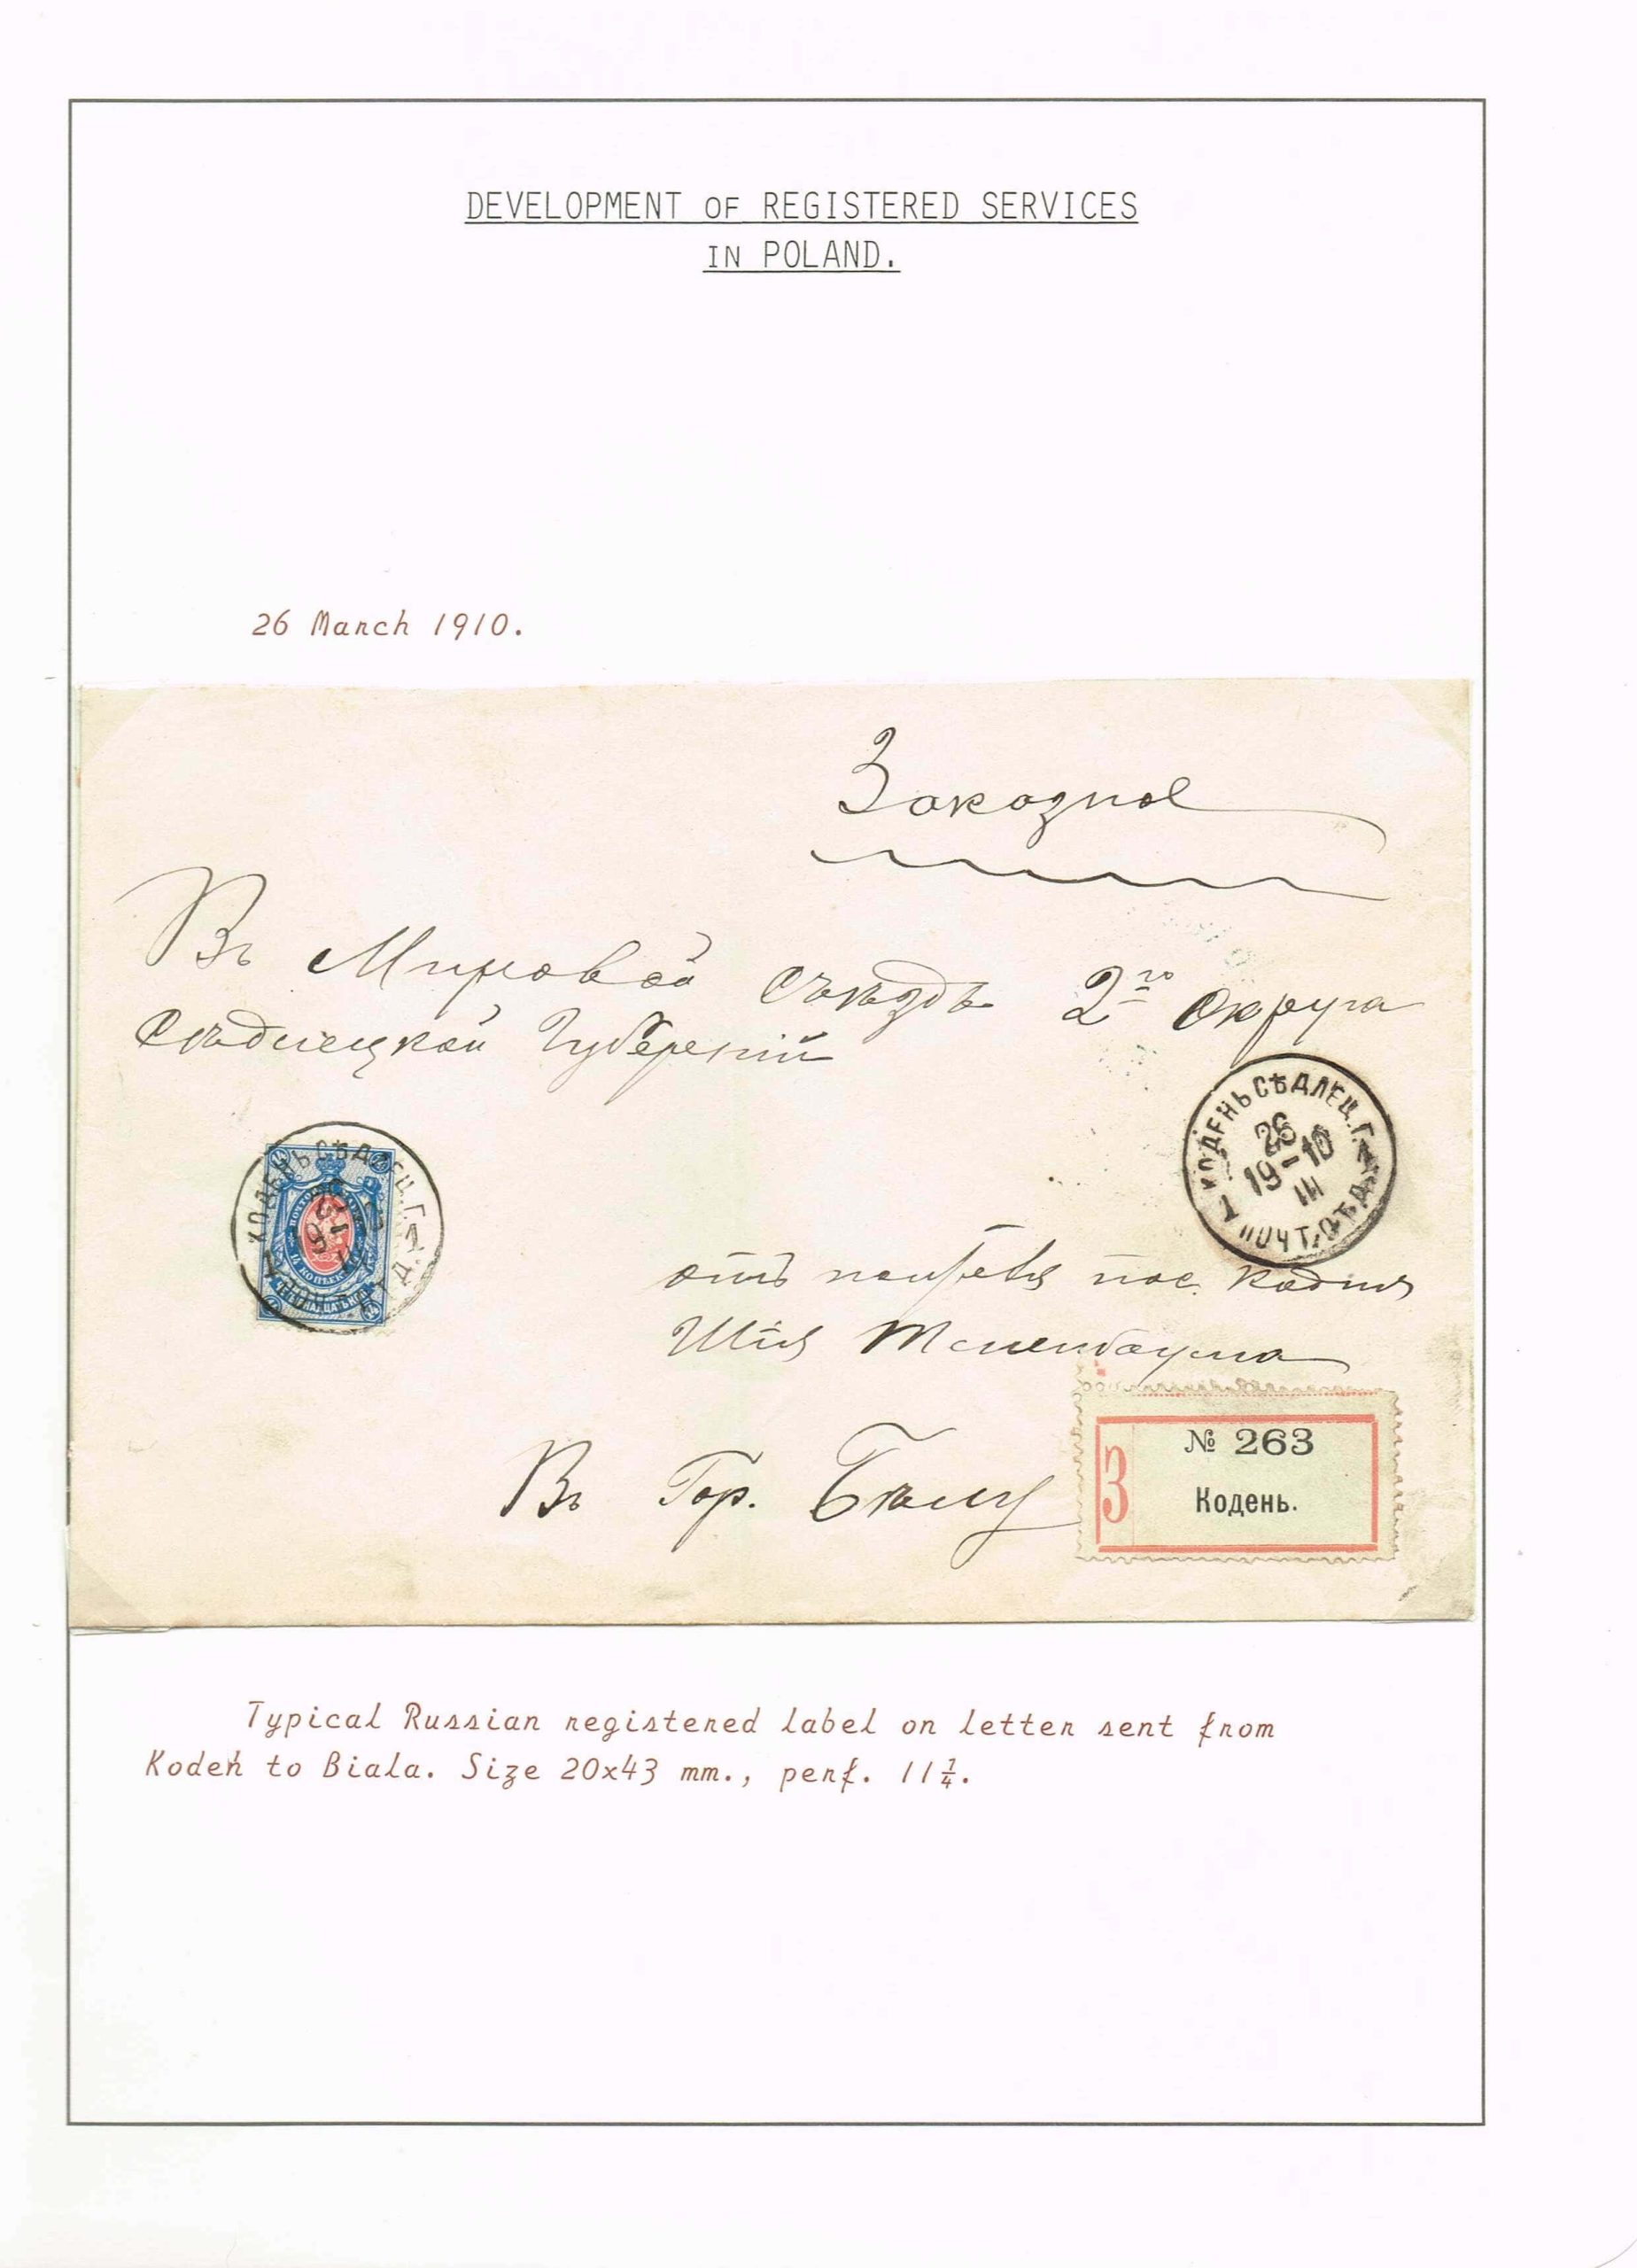 DEVELOPMENT OF REGISTERED SERVICES
IN POLAND.
26 March 1910.
Заказное
Въ Мировой Съѣздъ 2го Округа
Сѣдлецкой Губерніи
КОДЕНЬ СѢДЛЕЦ. Г.
26
19-10
III
ПОЧТ. ОТД.
КОДЕНЬ СѢДЛЕЦ. Г.
14 КОПѢЕКЪ
отъ пос. Кодня
Въ Гор. Бѣлу
№ 263
З
Кодень.
Typical Russian registered label on letter sent from
Kodeń to Biala. Size 20x43 mm., perf. 11¼.